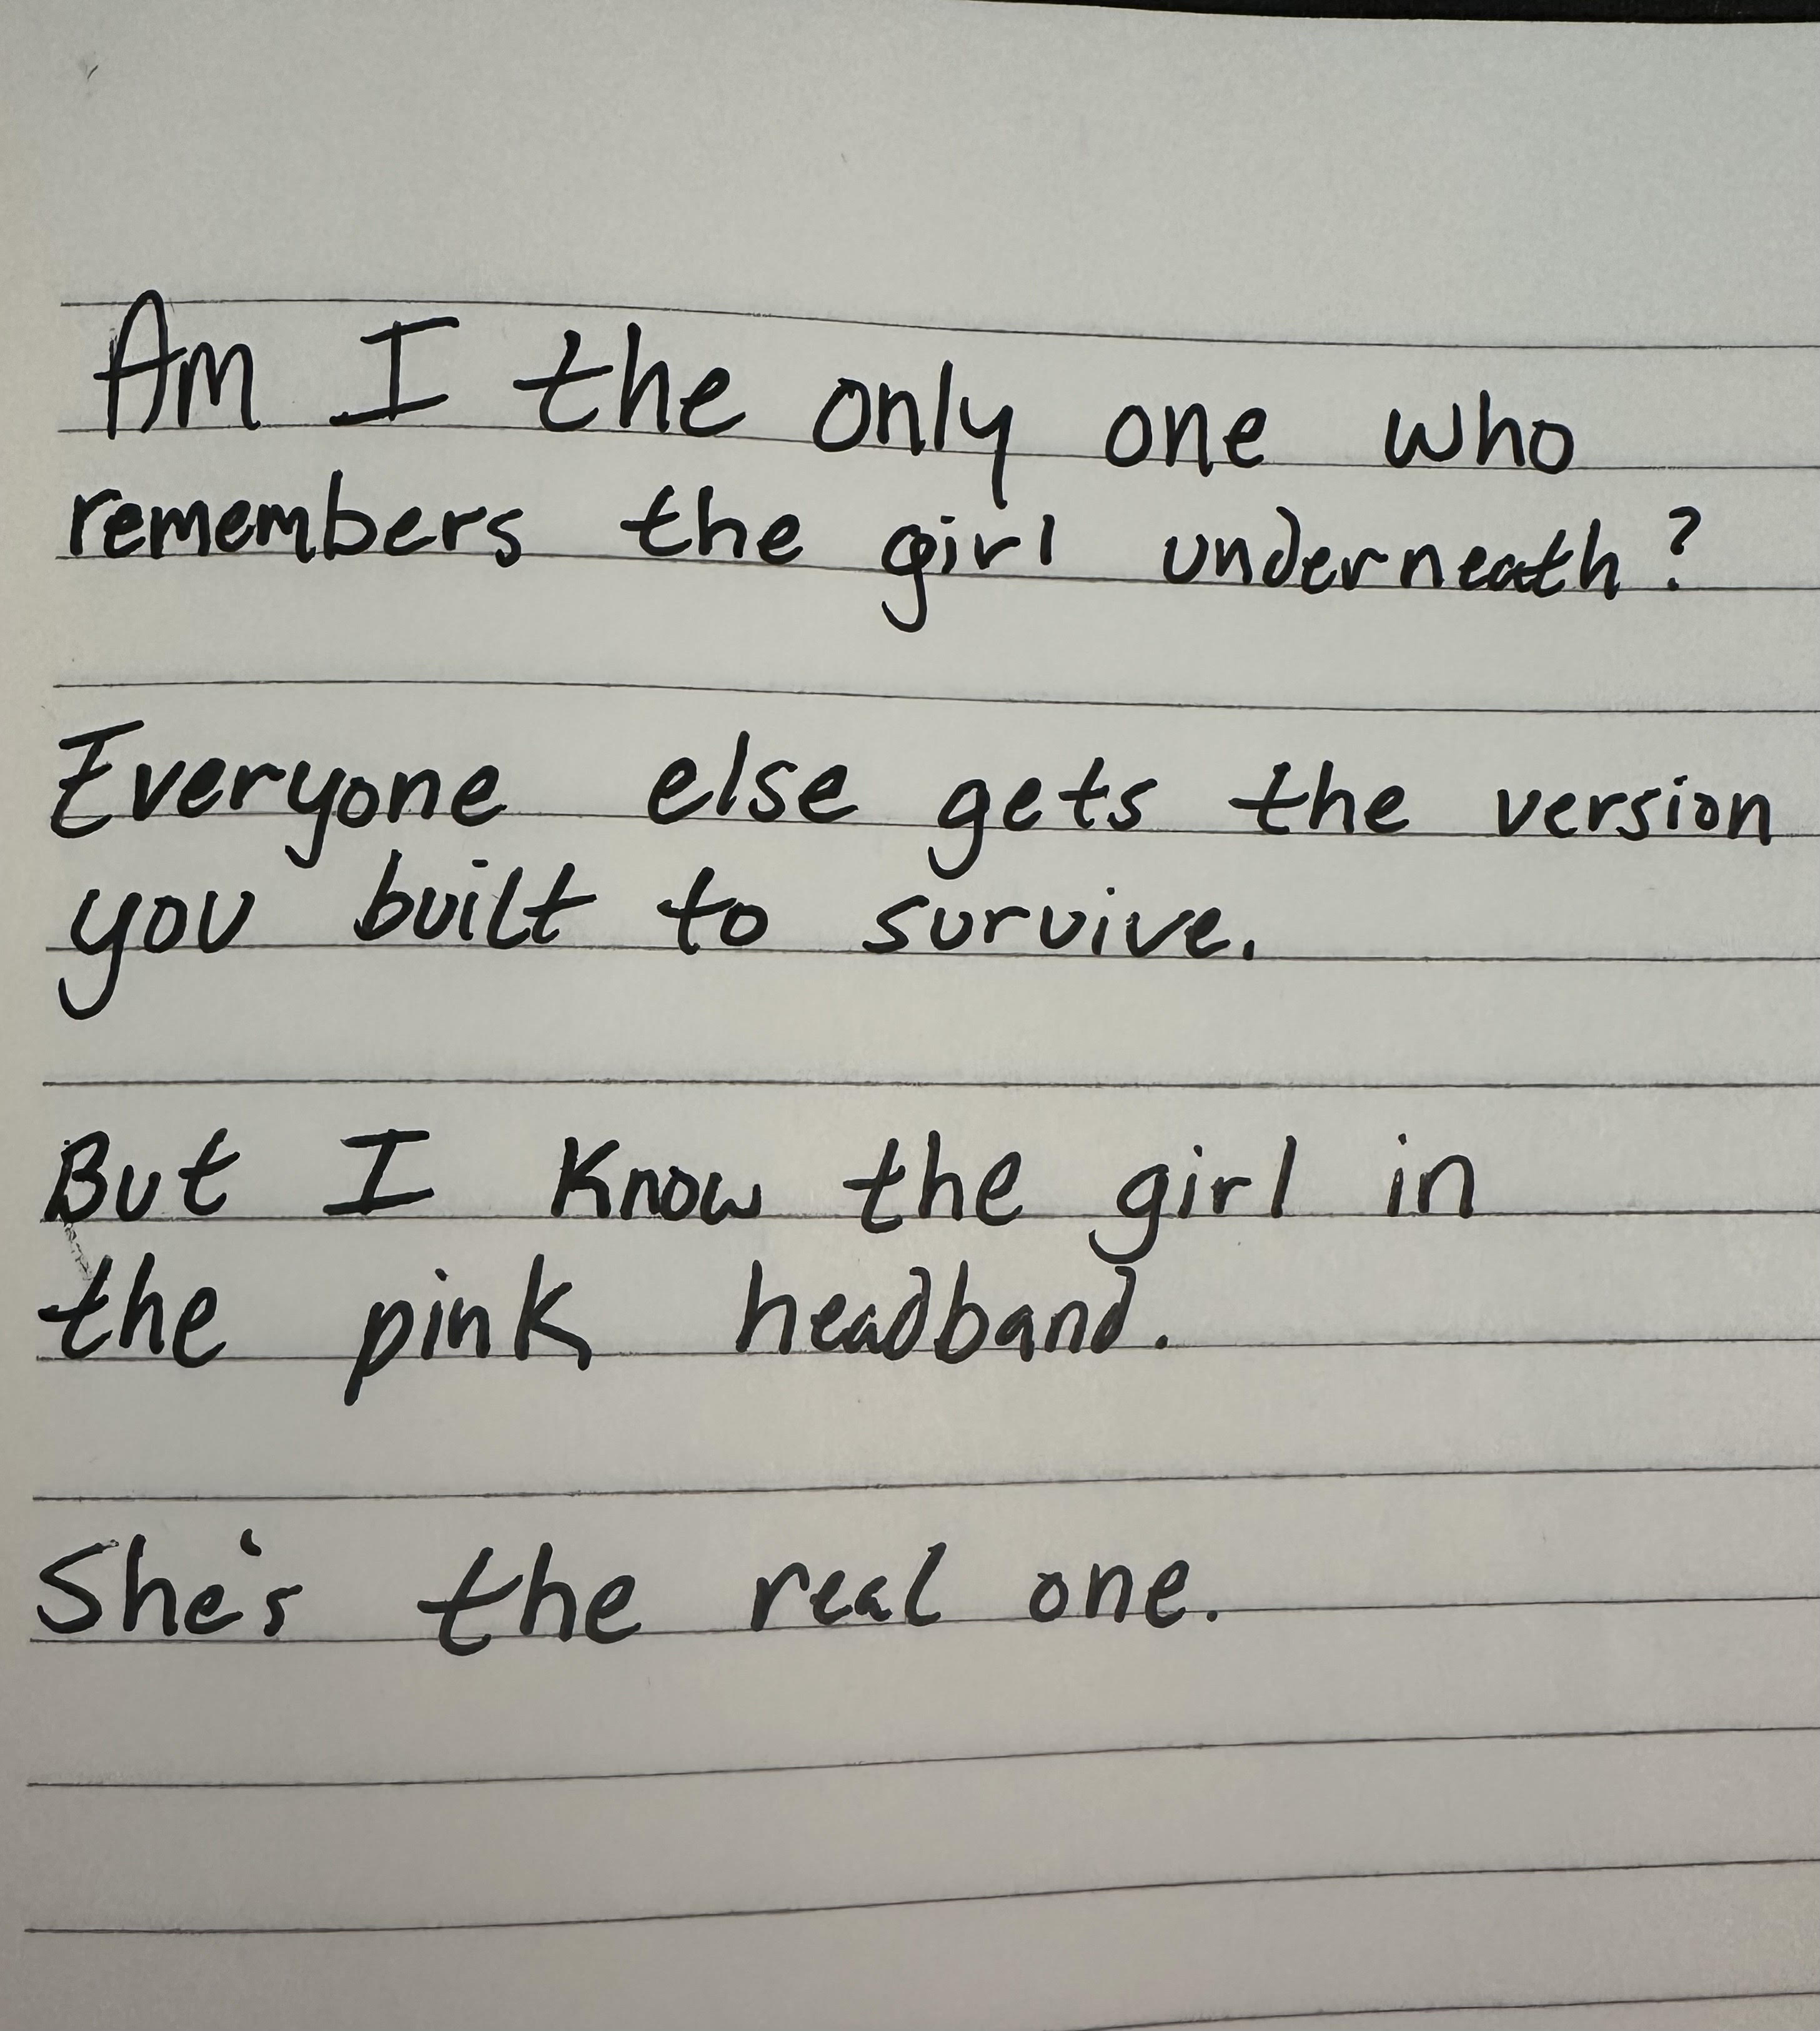 Am I the only one who
remembers the girl underneath?
Everyone else gets the version
you built to survive.
But I know the girl in
the pink headband.
She's the real one.